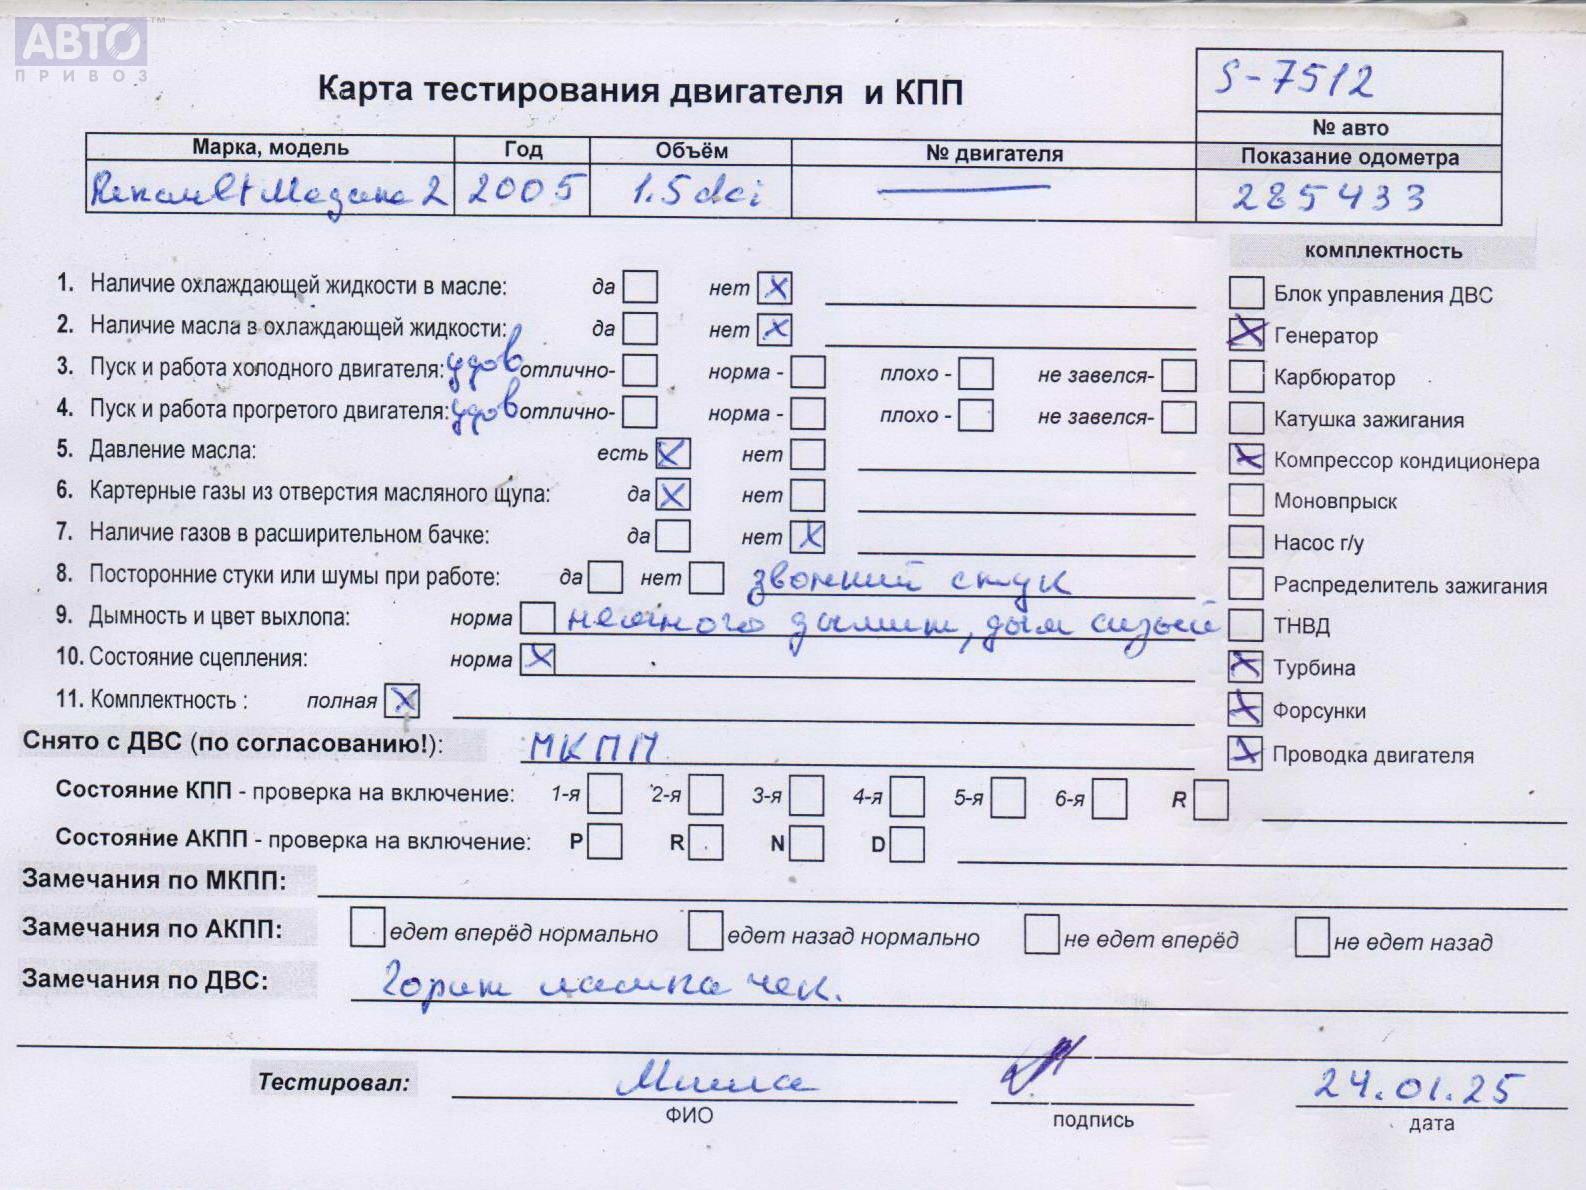 АВТО ™
ПРИВОЗ
Карта тестирования двигателя и КПП
S-7512
№ авто
Марка, модель Год Объём № двигателя Показание одометра
Renault Megane 2 2005 1.5 dci 285433
комплектность
1. Наличие охлаждающей жидкости в масле: да нет X
2. Наличие масла в охлаждающей жидкости: да нет X
3. Пуск и работа холодного двигателя: удов отлично- норма - плохо - не завелся-
4. Пуск и работа прогретого двигателя: удов отлично- норма - плохо - не завелся-
5. Давление масла: есть X нет
6. Картерные газы из отверстия масляного щупа: да X нет
7. Наличие газов в расширительном бачке: да нет X
8. Посторонние стуки или шумы при работе: да нет звонкий стук
9. Дымность и цвет выхлопа: норма немного дымит, дым сизый
10. Состояние сцепления: норма X
11. Комплектность : полная X
Блок управления ДВС
X Генератор
Карбюратор
Катушка зажигания
X Компрессор кондиционера
Моновпрыск
Насос г/у
Распределитель зажигания
ТНВД
X Турбина
X Форсунки
X Проводка двигателя
Снято с ДВС (по согласованию!): МКПП
Состояние КПП - проверка на включение: 1-я 2-я 3-я 4-я 5-я 6-я R
Состояние АКПП - проверка на включение: P R N D
Замечания по МКПП:
Замечания по АКПП: едет вперёд нормально едет назад нормально не едет вперёд не едет назад
Замечания по ДВС: Горит лампа чек.
Тестировал: Миша 24.01.25
ФИО подпись дата